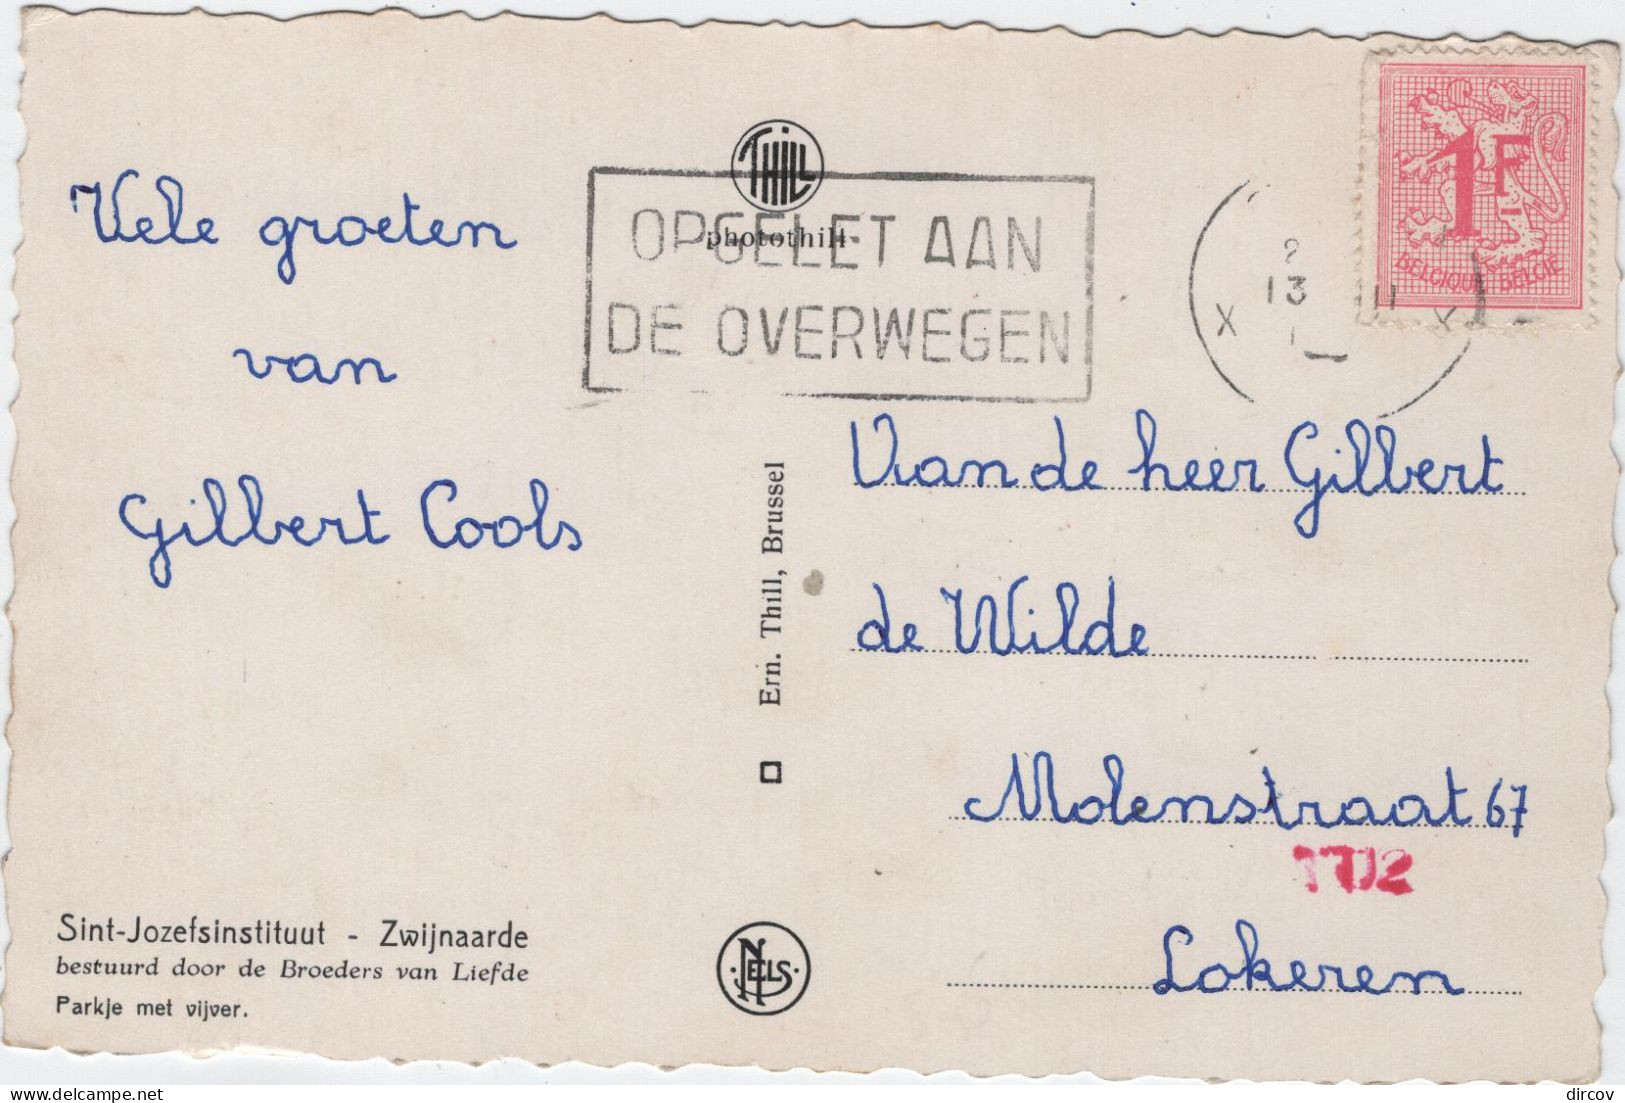 Vele groeten
van
Gilbert Cools
Sint-Jozefsinstituut - Zwijnaarde
bestuurd door de Broeders van Liefde
Parkje met vijver.
THILL
photothill
OPGELET AAN
DE OVERWEGEN
Ern. Thill, Brussel
NELS
1F
BELGIQUE BELGIE
2
13 11
X X
Van de heer Gilbert
de Wilde
Molenstraat 67
1702
Lokeren
delcampe.net
dircov